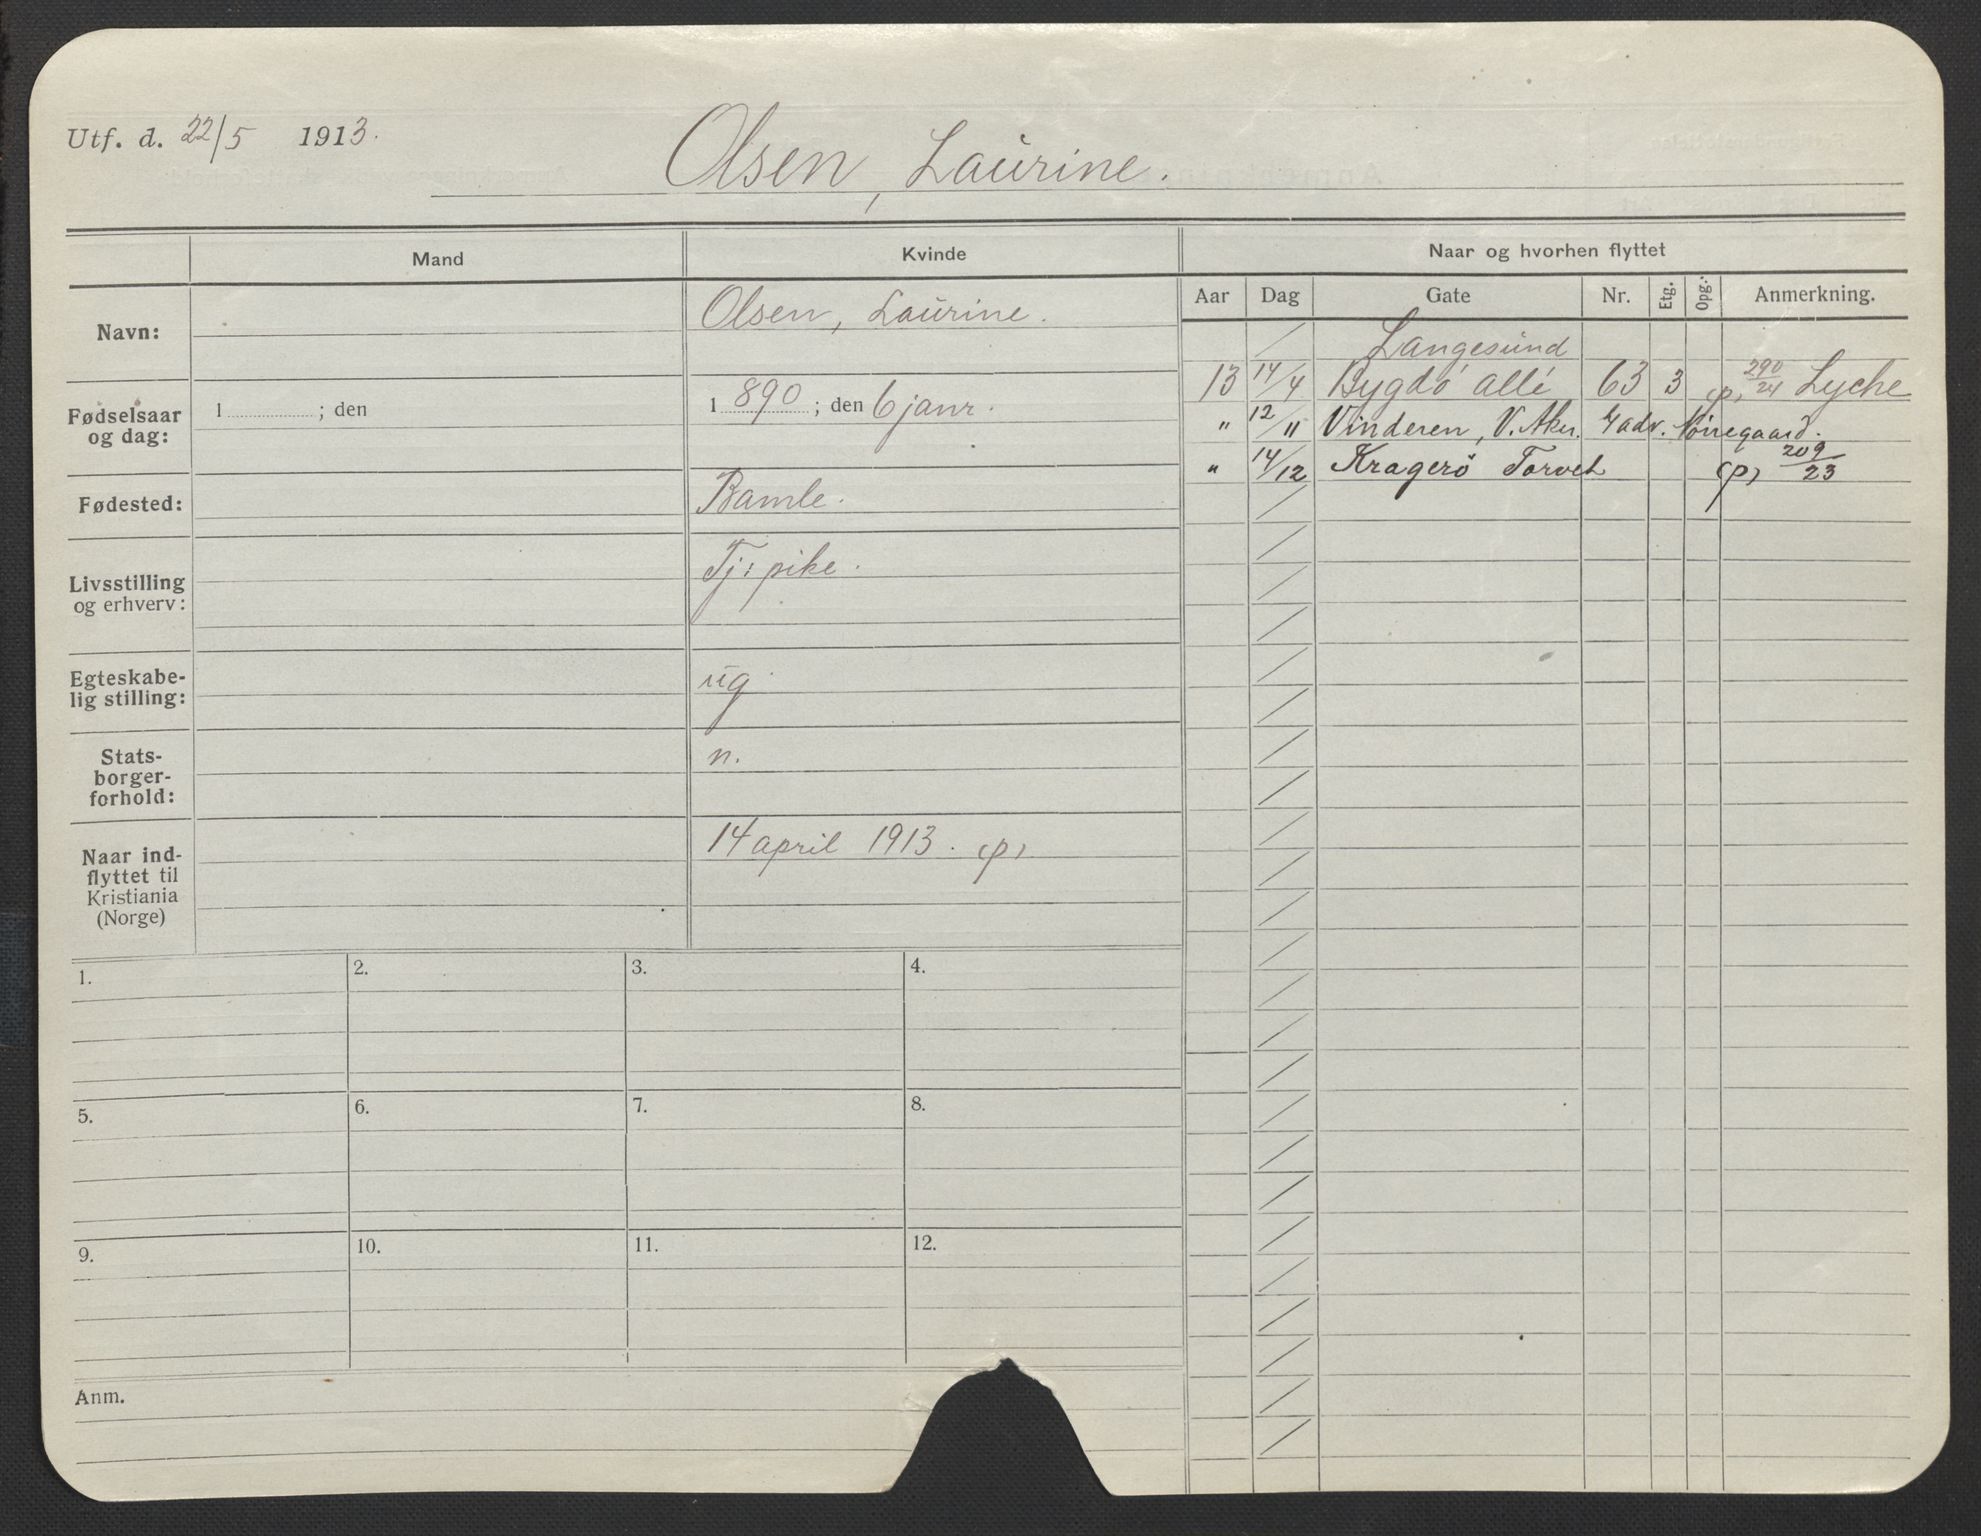 Utf. d. 22/5 1913.
Olsen, Laurine.
Mand
Kvinde
Naar og hvorhen flyttet
Aar Dag Gate Nr. Etg. Opg. Anmerkning.
Navn:
Olsen, Laurine.
Fødselsaar og dag:
1 ; den
1890 ; den 6 janr.
Fødested:
Bamle.
Livsstilling og erhverv:
Tj: pike.
Egteskabe-
lig stilling:
ug
Stats-
borger-
forhold:
n.
Naar ind-
flyttet til
Kristiania
(Norge)
14 april 1913. (p)
Langesund
13 14/4 Bygdö allé 63 3 (p) 290/24 Lyche
" 12/11 Vinderen, V. Aker. adv.
" 14/12 Kragerö Torvet (p) 209/23
1. 2. 3. 4.
5. 6. 7. 8.
9. 10. 11. 12.
Anm.